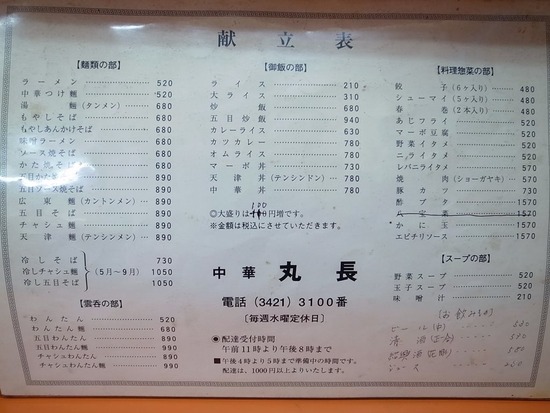 献立表
【麺類の部】
ラーメン 520
中華つけ麺 520
湯麺(タンメン) 680
もやしそば 680
もやしあんかけそば 680
味噌ラーメン 680
ソース焼そば 680
かた焼そば 680
五目かた焼 890
五目ソース焼そば 890
広東麺(カントンメン) 890
五目そば 890
チャシュ麺 890
天津麺(テンシンメン) 890
冷しそば 730
冷しチャシュ麺 (5月〜9月) 1050
冷し五目そば 1050
【雲呑の部】
わんたん 520
わんたん麺 680
五目わんたん 890
五目わんたん麺 990
チャシュわんたん 890
チャシュわんたん麺 990
【御飯の部】
ライス 210
大ライス 310
炒飯 680
五目炒飯 940
カレーライス 630
カツカレー 780
オムライス 780
マーボ丼 730
天津丼(テンシンドン) 780
中華丼 780
◎大盛りは100円増です。
※金額は税込にさせていただきます。
中華 丸長
電話(3421)3100番
〔毎週水曜定休日〕
◉配達受付時間
午前11時より午後8時まで
■午後4時より5時まで準備中の時間です。
配達は、1000円以上よりいたします。
【料理惣菜の部】
餃子(6ヶ入り) 480
シューマイ(5ヶ入り) 480
春巻(2本入り) 480
あじフライ 520
マーボ豆腐 520
野菜イタメ 520
ニライタメ 520
レバニライタメ 570
焼肉(ショーガヤキ) 570
豚カツ 730
酢ブタ 1570
八宝菜 1570
かに玉 1570
エビチリソース 1570
【スープの部】
野菜スープ 520
玉子スープ 520
味噌汁 210
(お飲みもの)
ビール(中)
清酒
紹興酒
ジュース